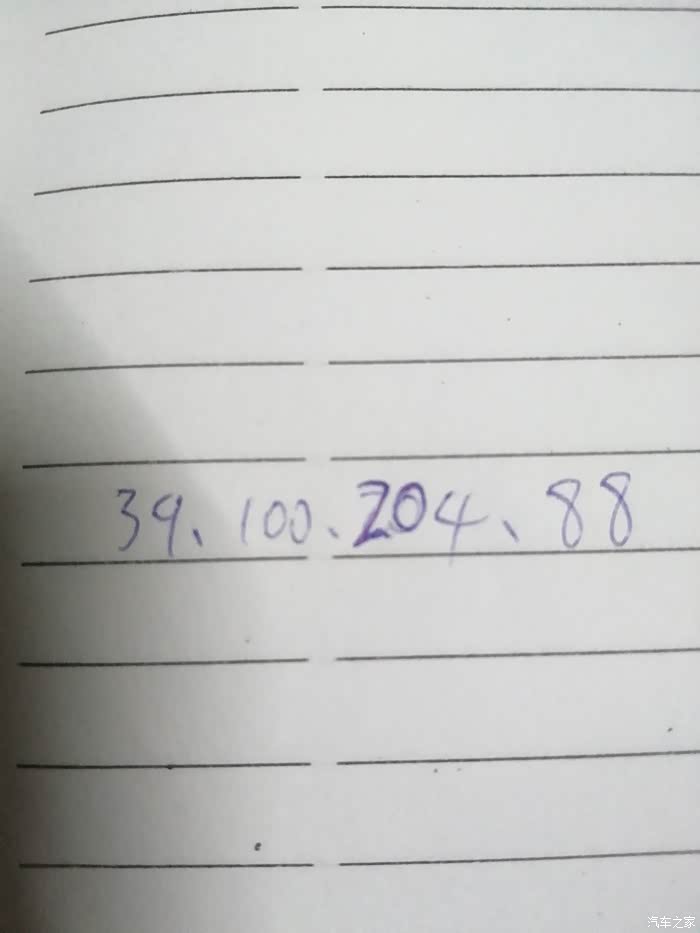 39、100、204、88
汽车之家